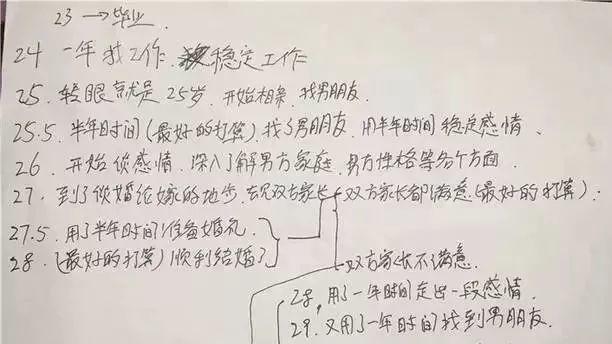 23 → 毕业.
24 一年找工作. 稳定工作
25. 转眼就是25岁. 开始相亲. 找男朋友.
25.5. 半年时间(最好的打算)找了男朋友. 用半年时间稳定感情.
26. 开始谈感情. 深入了解男方家庭. 男方性格等各个方面.
27. 到了谈婚论嫁的地步. 去见双方家长 双方家长都满意(最好的打算).
27.5. 用了半年时间准备婚礼.
28. (最好的打算)顺利结婚了
双方家长不满意.
28, 用了一年时间走出一段感情.
29. 又用了一年时间找到男朋友.